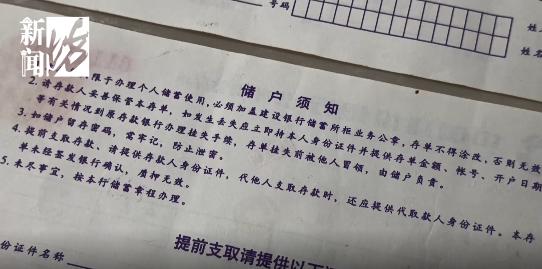 新闻结
号码
姓
姓名
储户须知
限于办理个人储蓄使用,必须加盖建设银行储蓄所柜业务公章,存单不得涂改,否则无效
2.请存款人妥善保管本存单,如发生丢失应立即持本人身份证件并提供存单金额、帐号、开户日期
等有关情况到原存款银行办理挂失手续,存单挂失前被他人冒领,由储户负责。
3.如储户留存密码,需牢记,防止泄密。
4.提前支取存款,请提供存款人身份证件,代他人支取存款时,还应提供代取款人身份证件。本存
单未经签发银行确认,质押无效。
5.未尽事宜,按本行储蓄章程办理。
提前支取请提供以下
份证件名称